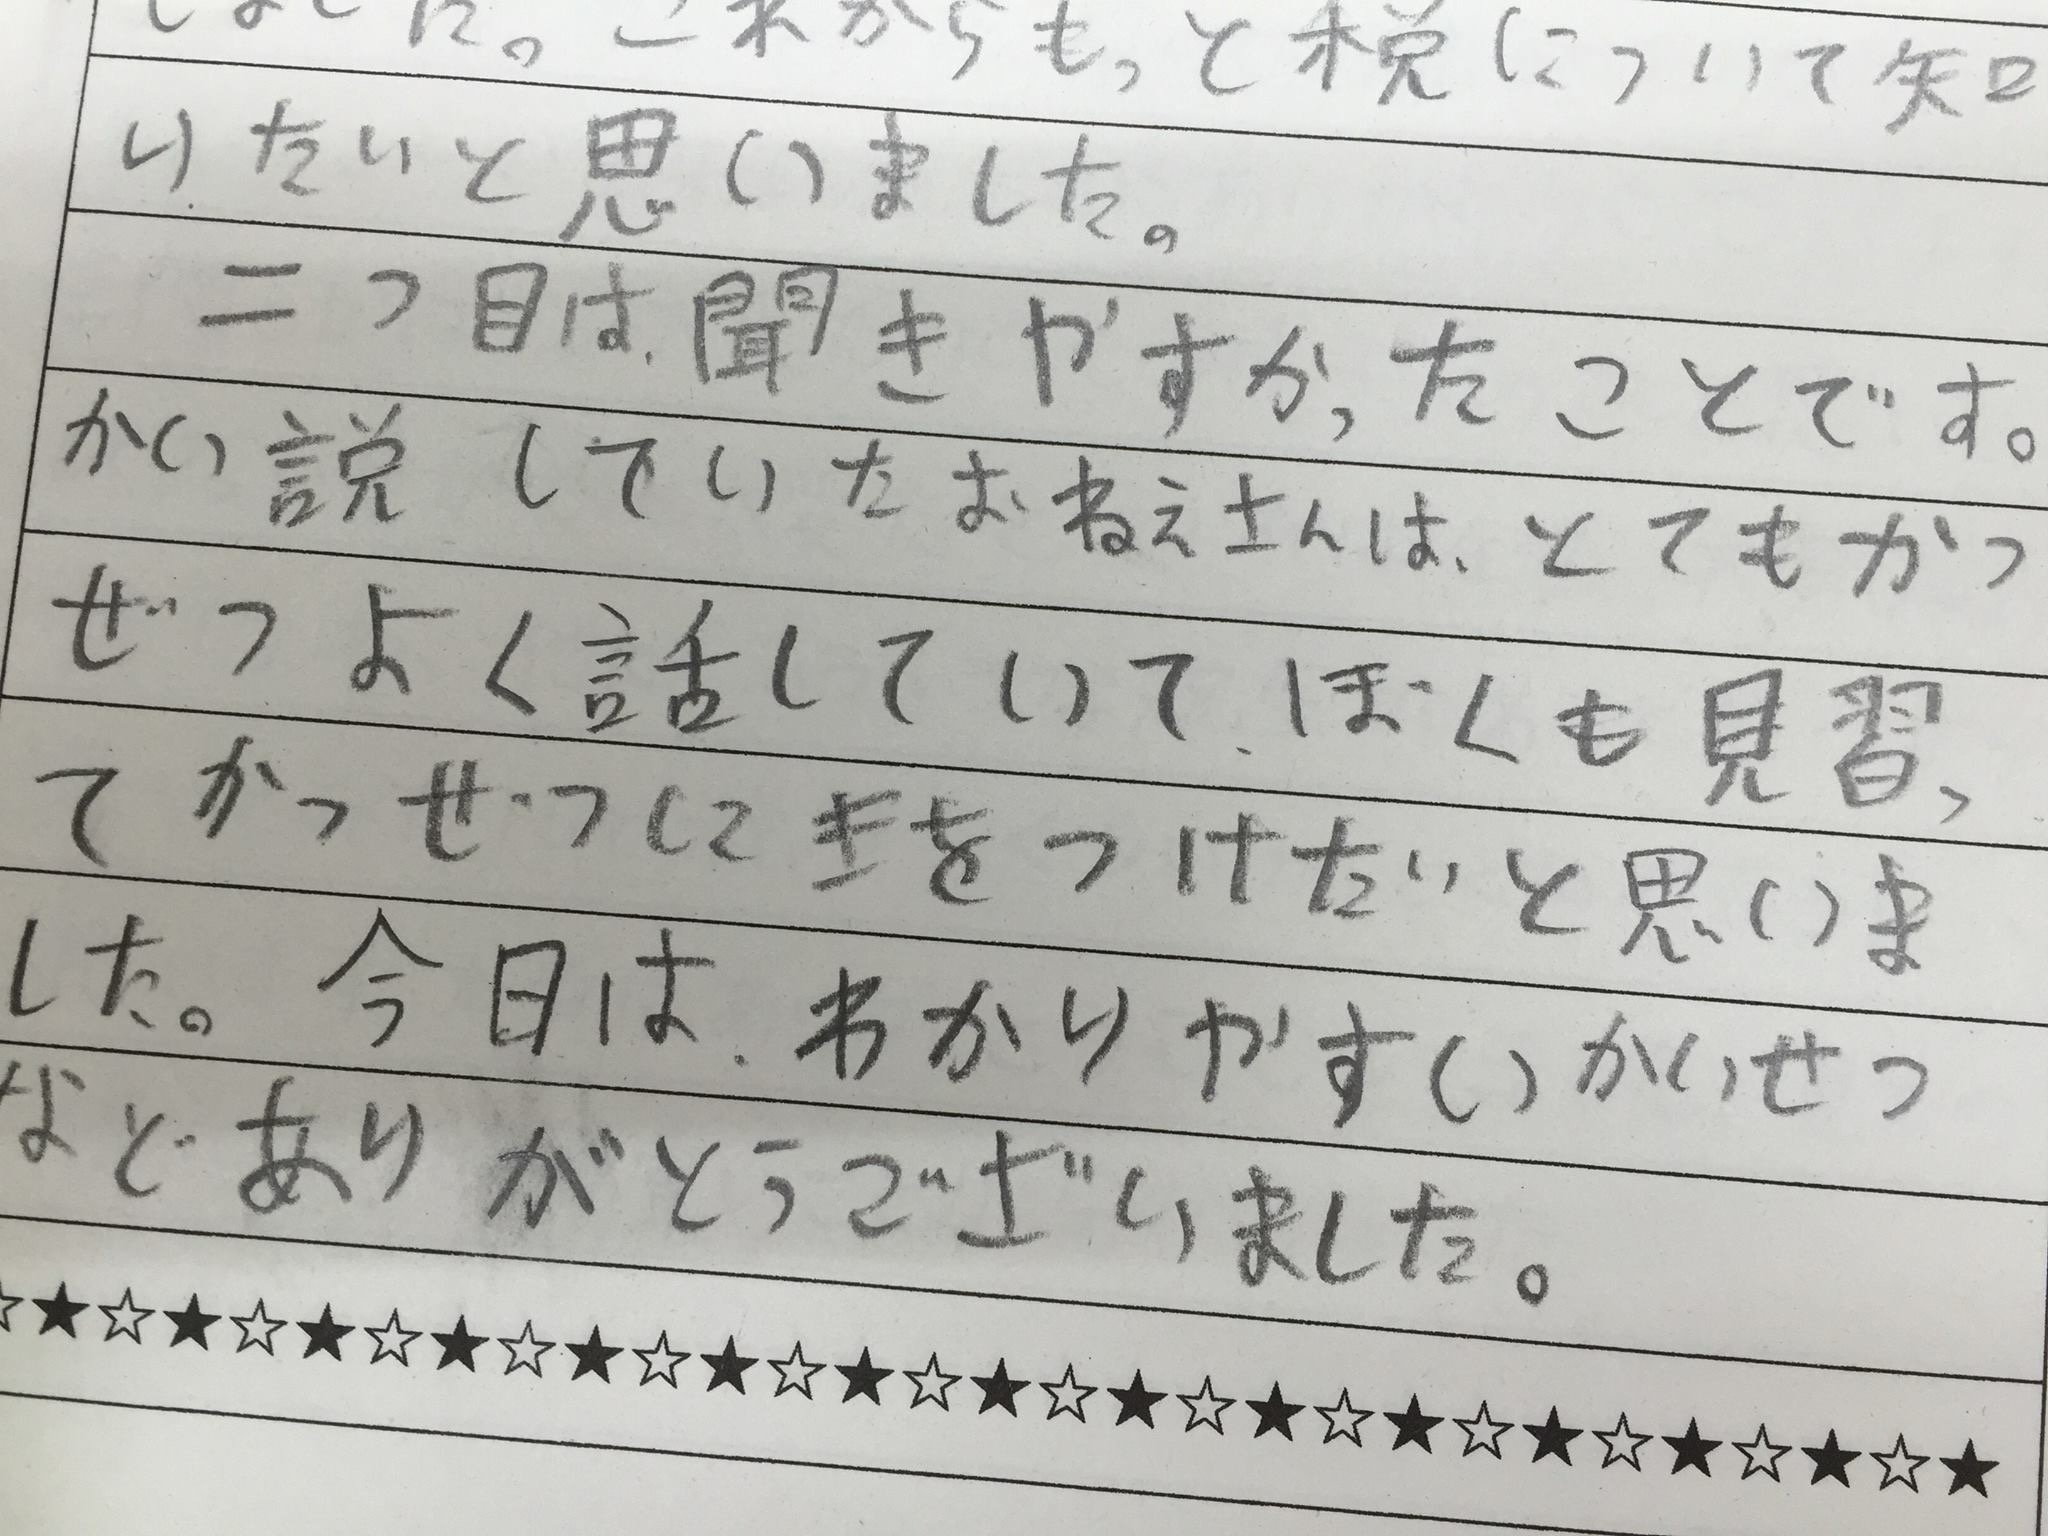 しました。これからもっと税について知
りたいと思いました。
二つ目は、聞きやすかったことです。
かい説していたおねえさんは、とてもかつ
ぜつよく話していて、ぼくも見習っ
てかつぜつにきをつけたいと思いま
した。今日は、わかりやすいかいせつ
などありがとうございました。
☆★☆★☆★☆★☆★☆★☆★☆★☆★☆★☆★☆★☆★☆★☆★